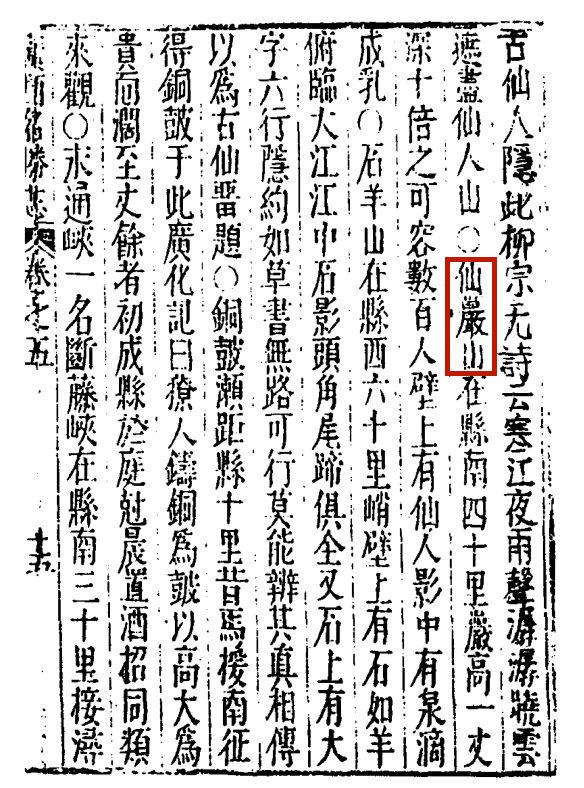 古仙人隱此柳宗元詩云寒江夜雨聲潺潺曉雲
遮盡仙人山〇仙巖山在縣南四十里巖高一丈
深十倍之可容數百人壁上有仙人影中有泉滴
成乳〇石羊山在縣西六十里峭壁上有石如羊
俯臨大江江中石影頭角尾蹄俱全又石上有大
字六行隱約如草書無路可行莫能辨其真相傳
以為古仙畱題〇銅鼓瀨距縣十里昔馬援南征
得銅鼓于此廣化記曰獠人鑄銅為鼓以高大為
貴面濶至丈餘者初成縣於庭尅晨置酒招同類
來觀〇永通峽一名斷藤峽在縣南三十里接潯
名勝志 卷之五 十五